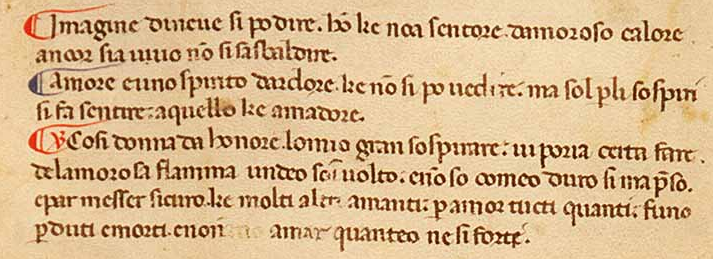 Imagine dineue si po dire. hō ke noa sentore. damoroso calore
ancor sia uiuo nō si sa sbaldire.
Amore e uno spirito dardore. ke nō si po uedire. ma sol p li sospiri
si fa sentire. a quello ke amadore.
Cosi donna da honore. lo mio gran sospirare. ui poria certa fare.
de lamorosa flamma undeo son uolto. e nō so comeo duro si ma pso.
e par messer sicuro. ke molti altri amanti. p amor tucti quanti. funo
pduti e morti. e non amar quanteo ne si forte.